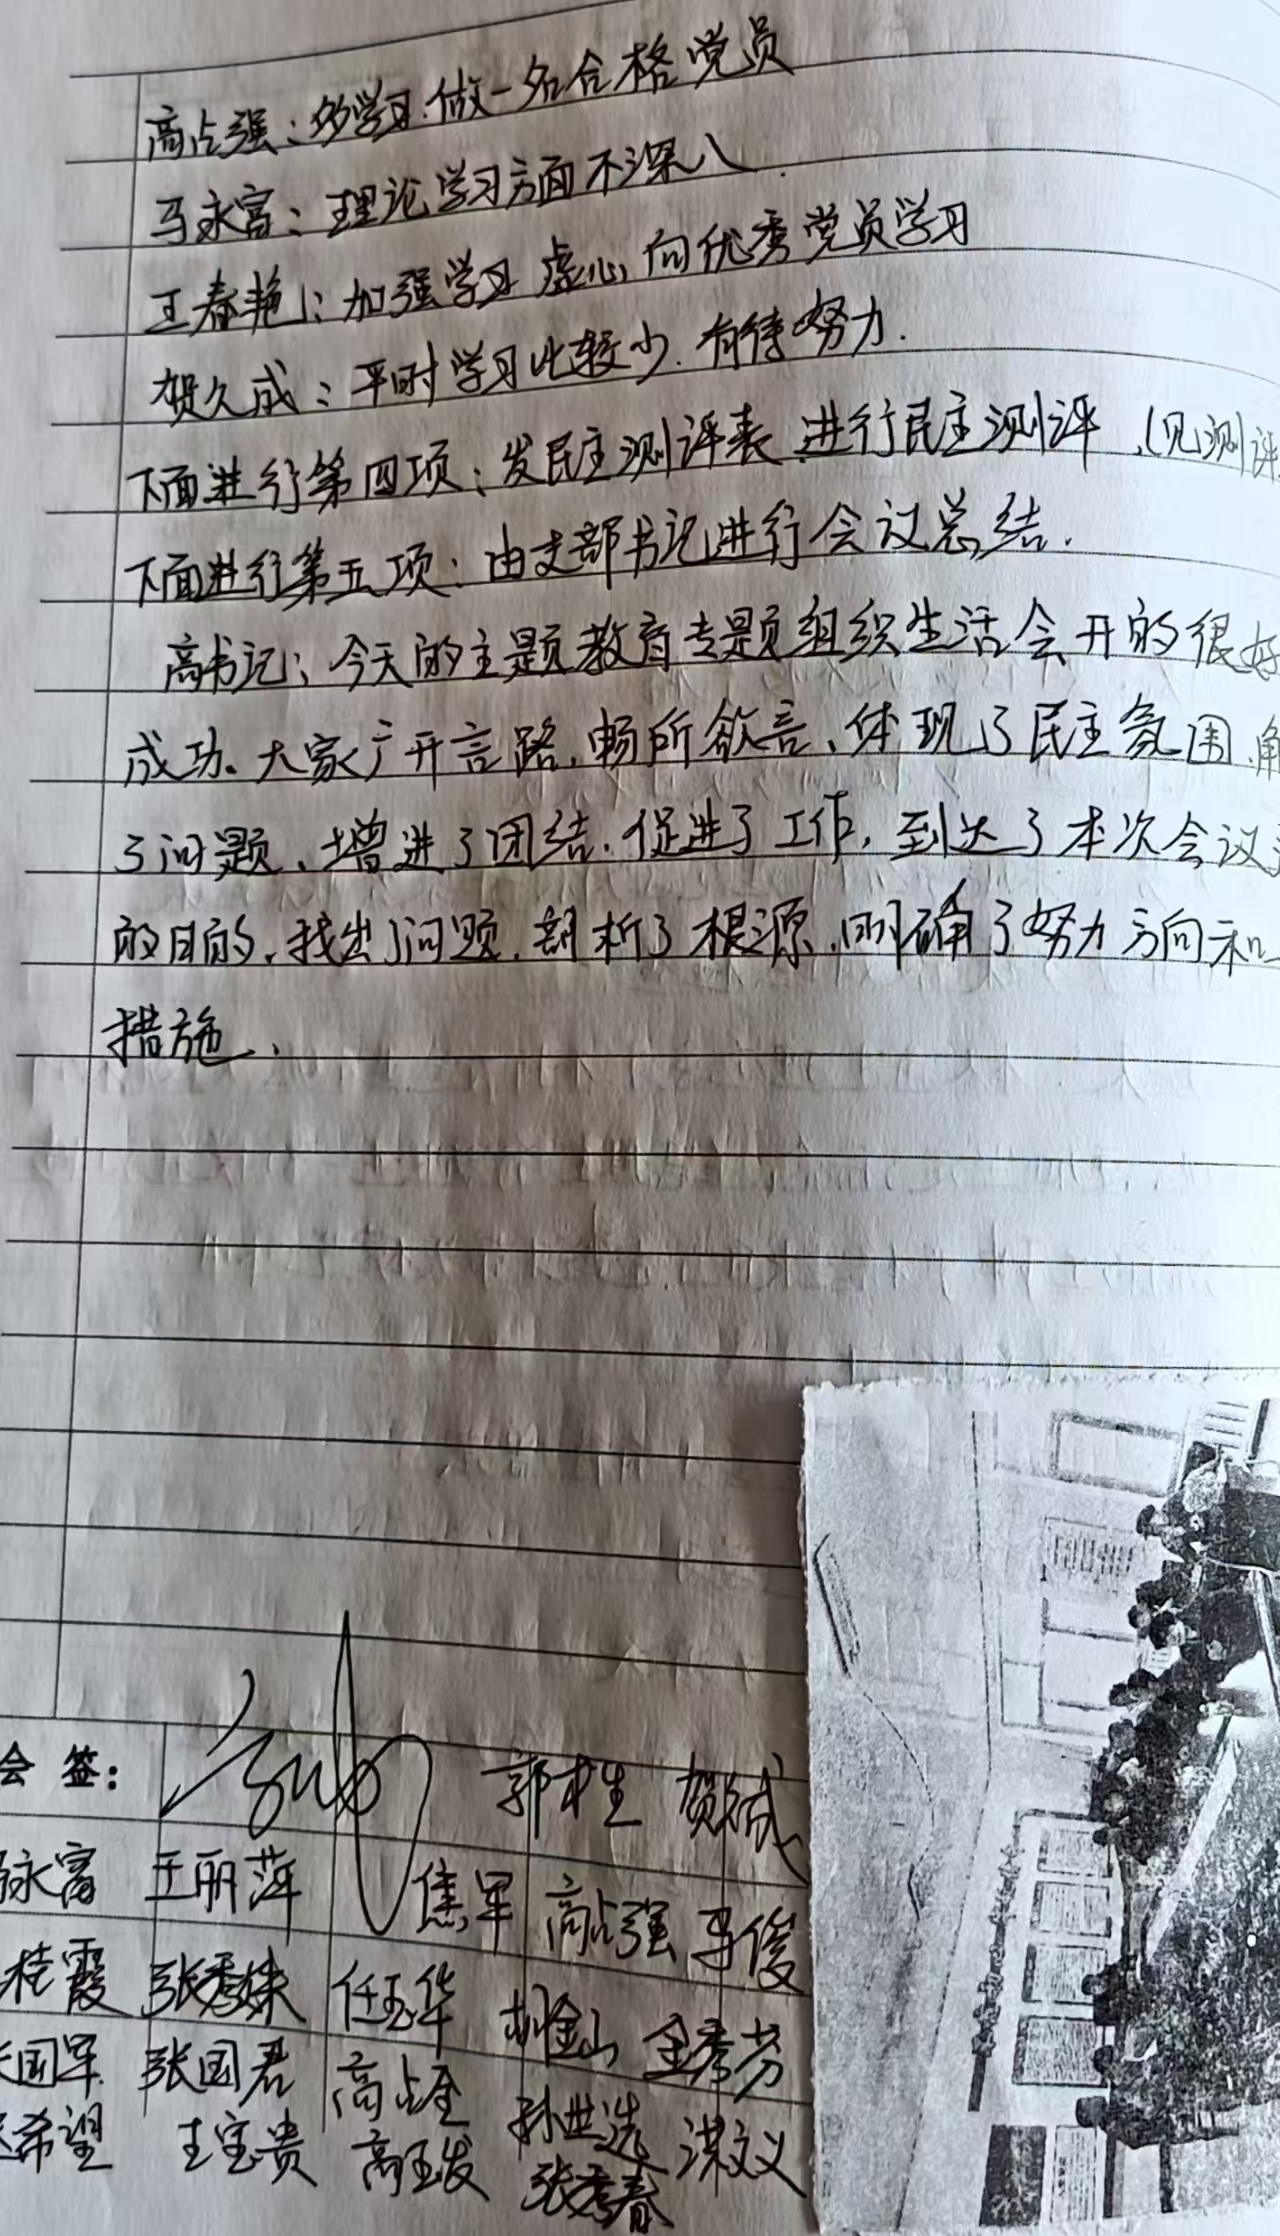 高占强：多学习.做一名合格党员
马永富：理论学习方面不深入.
王春艳：加强学习 虚心向优秀党员学习
贺久成：平时学习比较少.有待努力.
下面进行第四项：发民主测评表 进行民主测评.(见测评
下面进行第五项：由支部书记进行会议总结.
高书记：今天的主题教育专题组织生活会开的很好
成功.大家广开言路,畅所欲言、体现了民主氛围.解
了问题、增进了团结.促进了工作,到达了本次会议
的目的.找出了问题.剖析了根源.明确了努力方向和
措施.
会签：
郭树生 贺久成
永富 王丽萍 焦军 高占强 马俊
桂霞 张秀妹 任玉华 金秀芳
国军 张国君 高占全 孙世选
希望 王宝贵 高玉发 张秀春